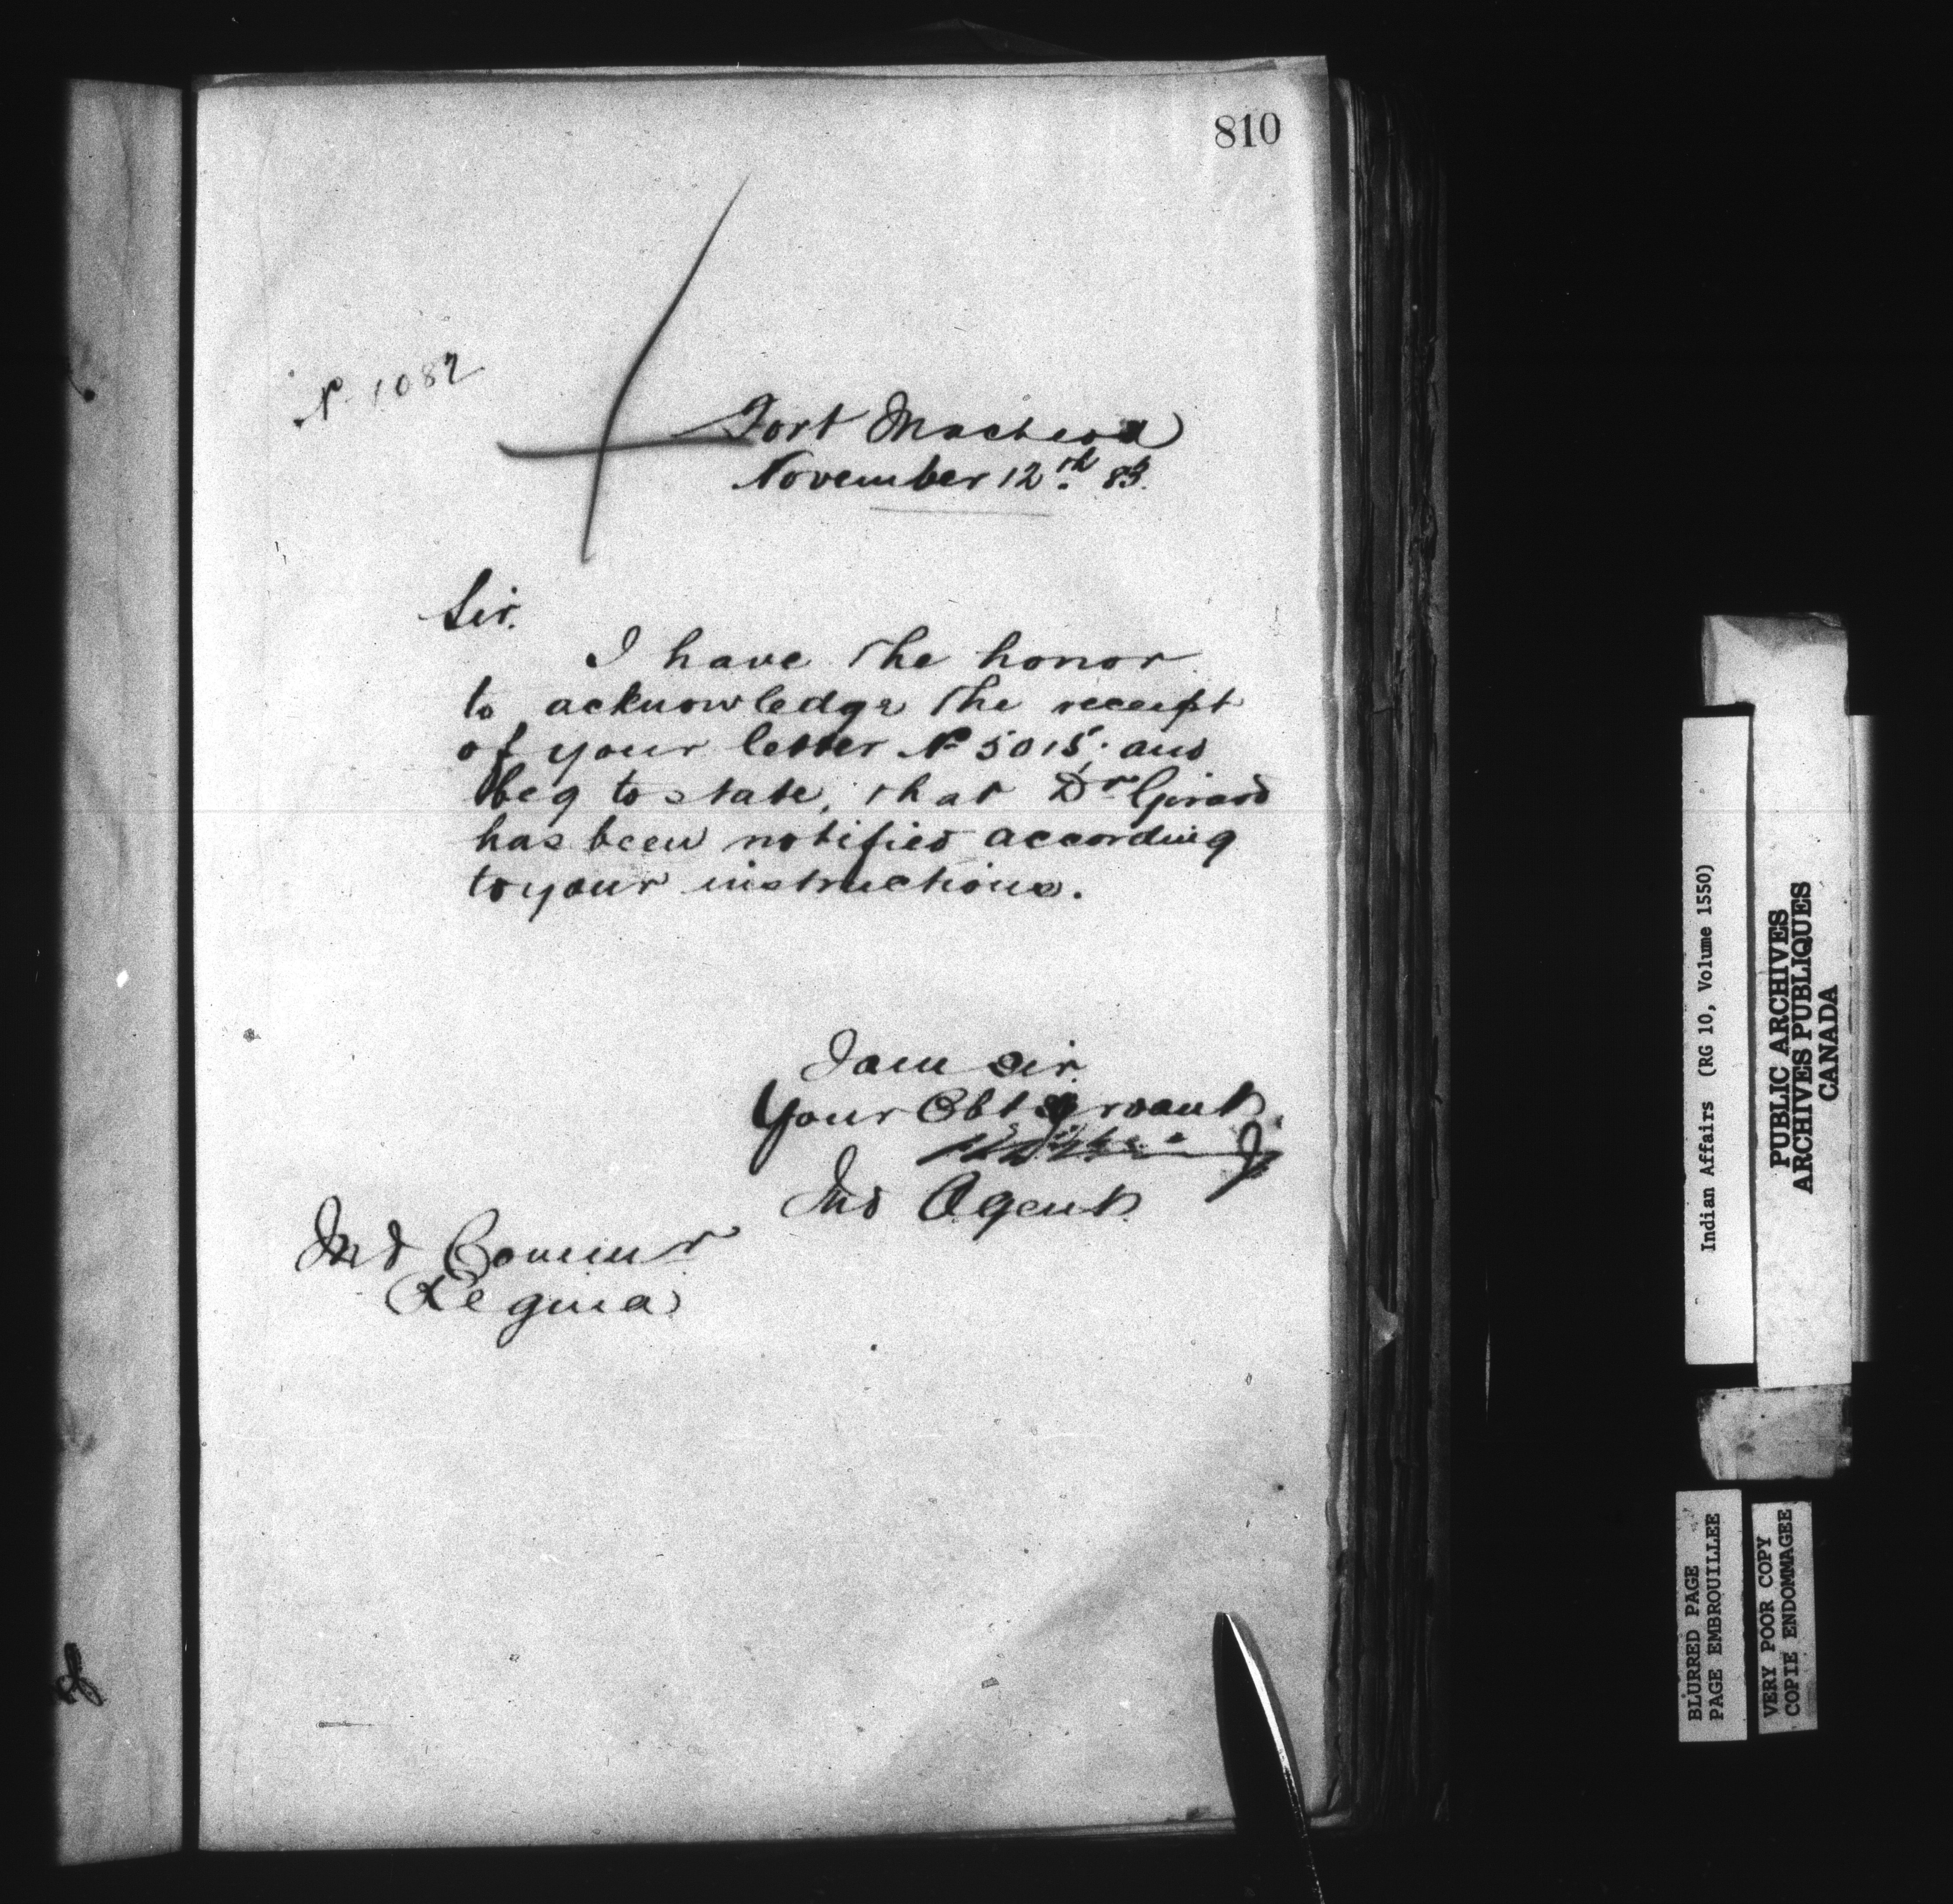 810
No 1082
Fort Macleod
November 12th 85.
Sir.
I have the honor
to acknowledge the receipt
of your letter No 5015; and
beg to state, that Dr Girard
has been notified according
to your instructions.
I am Sir.
Your Obt Servant.
Ind Agent.
Ind Commr
Regina
Indian Affairs (RG 10, Volume 1550)
PUBLIC ARCHIVES
ARCHIVES PUBLIQUES
CANADA
BLURRED PAGE
PAGE EMBROUILLEE
VERY POOR COPY
COPIE ENDOMMAGEE